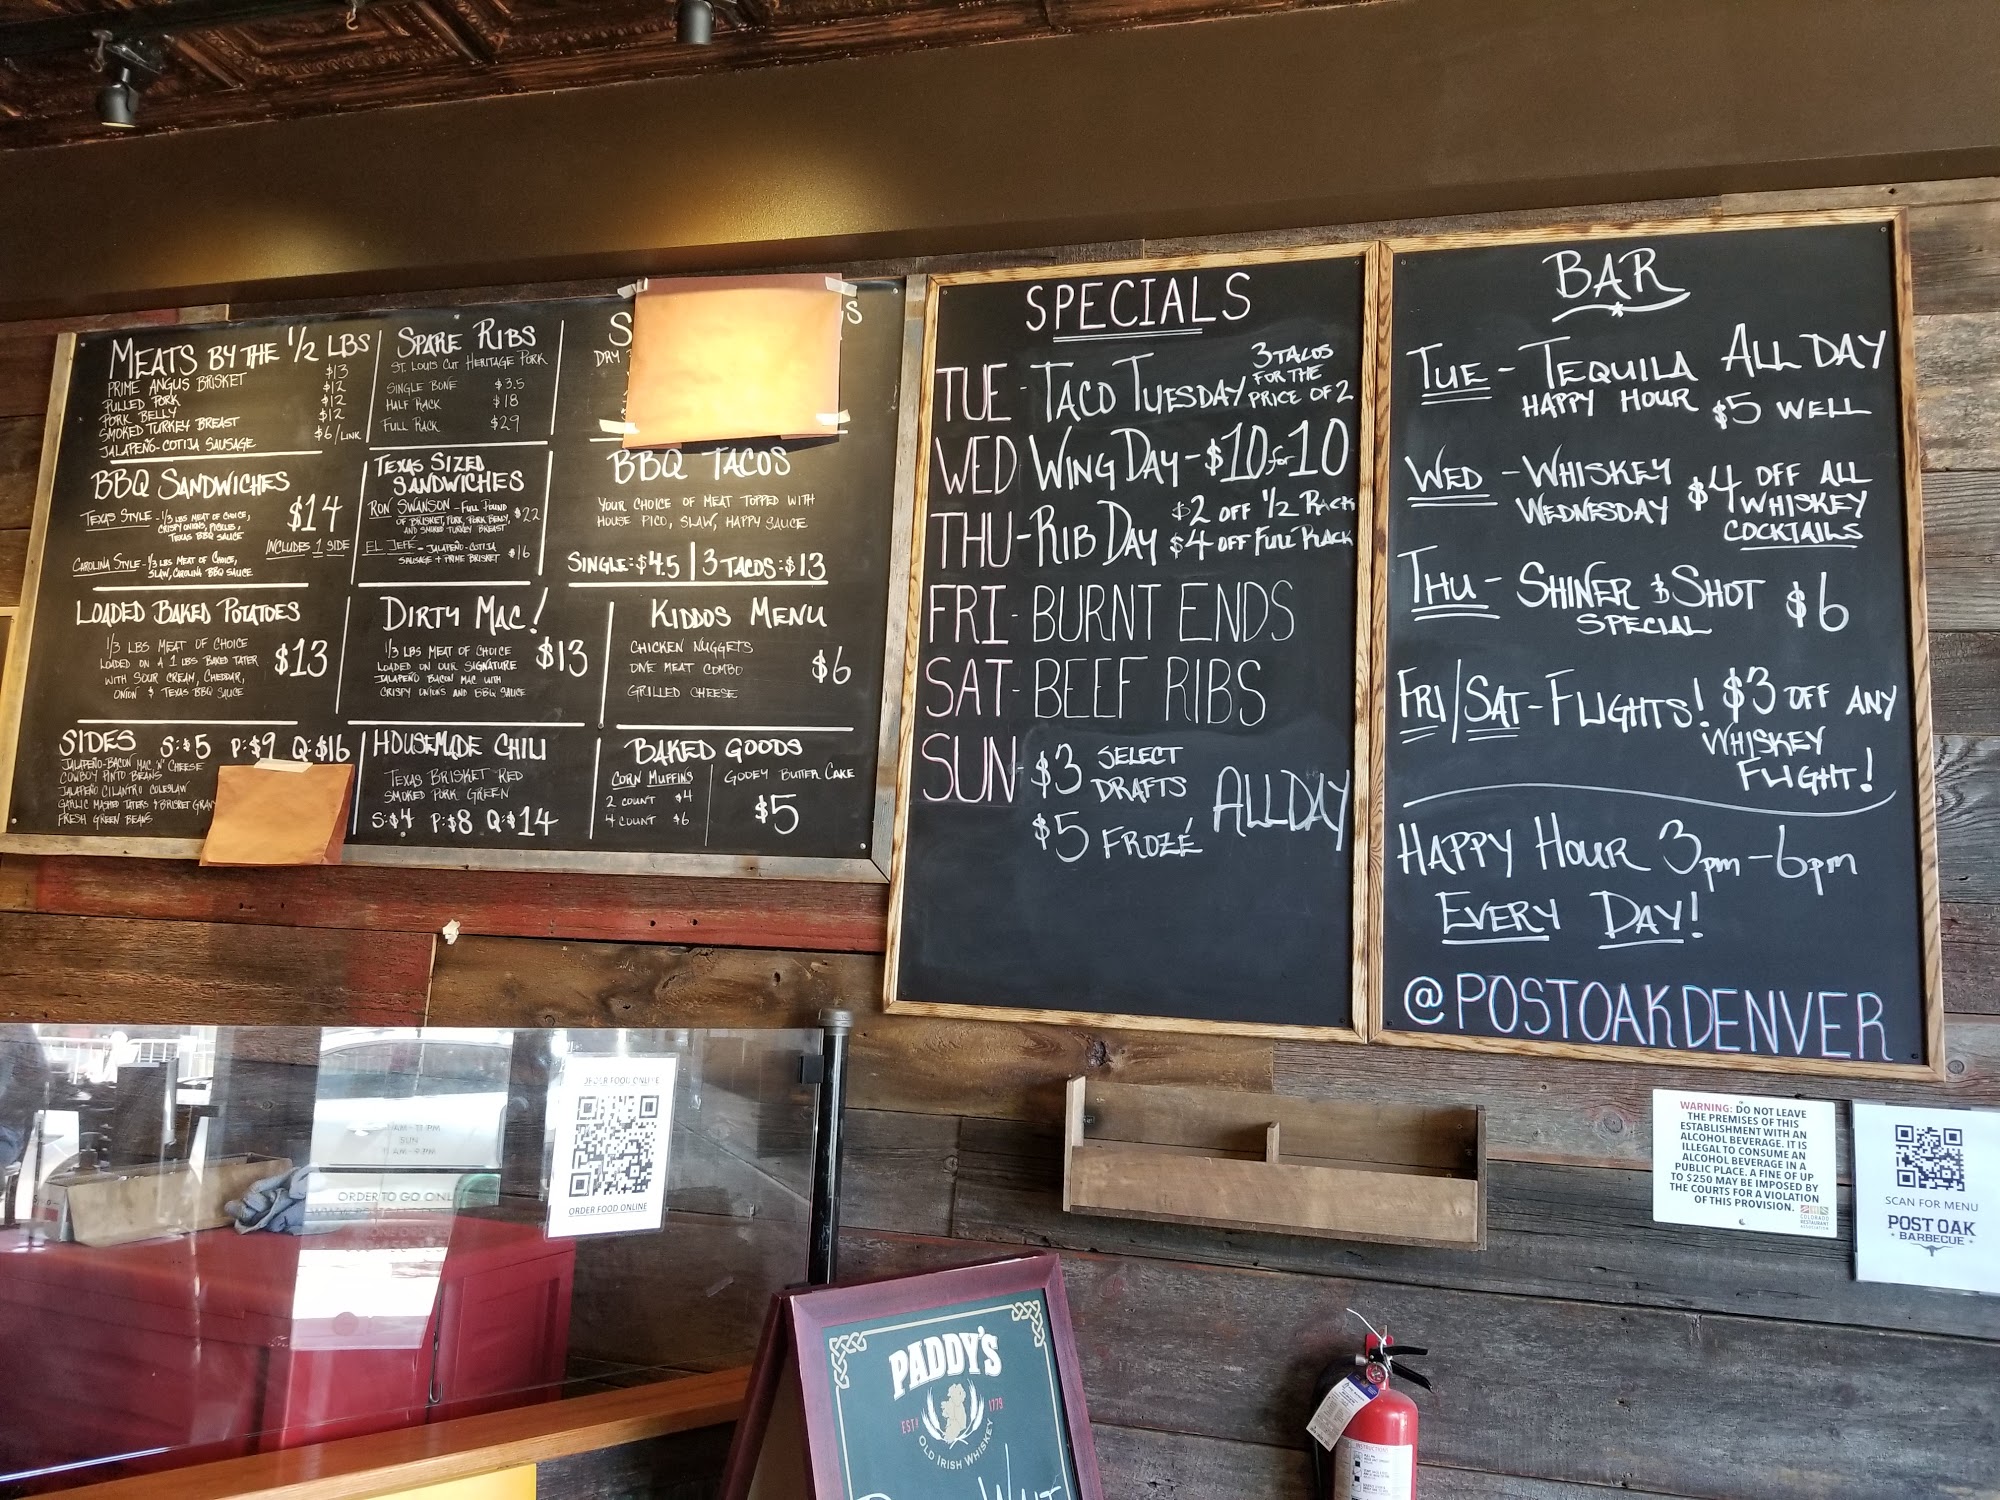 MEATS BY THE 1/2 LBS
PRIME ANGUS BRISKET $13
PULLED PORK $12
PORK BELLY $12
SMOKED TURKEY BREAST $12
JALAPEÑO-COTIJA SAUSAGE $6/LINK
SPARE RIBS
ST. LOUIS CUT HERITAGE PORK
SINGLE BONE $3.5
HALF RACK $18
FULL RACK $29
S
DRY
S
BBQ SANDWICHES
TEXAS STYLE - 1/3 LBS MEAT OF CHOICE,
CRISPY ONIONS, PICKLES,
TEXAS BBQ SAUCE
$14
INCLUDES 1 SIDE
CAROLINA STYLE - 1/3 LBS MEAT OF CHOICE,
SLAW, CAROLINA BBQ SAUCE
TEXAS SIZED
SANDWICHES
RON SWANSON - FULL POUND
OF BRISKET, PORK, PORK BELLY,
AND SMOKED TURKEY BREAST
$22
EL JEFE - JALAPEÑO-COTIJA
SAUSAGE + PRIME BRISKET $16
BBQ TACOS
YOUR CHOICE OF MEAT TOPPED WITH
HOUSE PICO, SLAW, HAPPY SAUCE
SINGLE: $4.5 | 3 TACOS: $13
LOADED BAKED POTATOES
1/3 LBS MEAT OF CHOICE
LOADED ON A 1 LBS BAKED TATER
WITH SOUR CREAM, CHEDDAR,
ONION & TEXAS BBQ SAUCE
$13
DIRTY MAC!
1/3 LBS MEAT OF CHOICE
LOADED ON OUR SIGNATURE
JALAPEÑO BACON MAC WITH
CRISPY ONIONS AND BBQ SAUCE
$13
KIDDOS MENU
CHICKEN NUGGETS
ONE MEAT COMBO
GRILLED CHEESE
$6
SIDES S:$5 P:$9 Q:$16
JALAPEÑO-BACON MAC 'N' CHEESE
COWBOY PINTO BEANS
JALAPEÑO CILANTRO COLESLAW
GARLIC MASHED TATERS & BRISKET GRAV
FRESH GREEN BEANS
HOUSEMADE CHILI
TEXAS BRISKET RED
SMOKED PORK GREEN
S:$4 P:$8 Q:$14
BAKED GOODS
CORN MUFFINS
2 COUNT $4
4 COUNT $6
GOOEY BUTTER CAKE
$5
SPECIALS
TUE - TACO TUESDAY 3 TACOS
FOR THE
PRICE OF 2
WED WING DAY - $10 for 10
THU - RIB DAY $2 OFF 1/2 RACK
$4 OFF FULL RACK
FRI - BURNT ENDS
SAT - BEEF RIBS
SUN - $3 SELECT
DRAFTS
$5 FROZÉ
ALL DAY
BAR
TUE - TEQUILA ALL DAY
HAPPY HOUR $5 WELL
WED - WHISKEY
WEDNESDAY
$4 OFF ALL
WHISKEY
COCKTAILS
THU - SHINER & SHOT
SPECIAL
$6
FRI/SAT - FLIGHTS! $3 OFF ANY
WHISKEY
FLIGHT!
HAPPY HOUR 3pm-6pm
EVERY DAY!
@POSTOAKDENVER
ORDER FOOD ONLINE
ORDER FOOD ONLINE
AM-11 PM
SUN
ORDER TO GO ONL
WARNING: DO NOT LEAVE
THE PREMISES OF THIS
ESTABLISHMENT WITH AN
ALCOHOL BEVERAGE. IT IS
ILLEGAL TO CONSUME AN
ALCOHOL BEVERAGE IN A
PUBLIC PLACE. A FINE OF UP
TO $250 MAY BE IMPOSED BY
THE COURTS FOR A VIOLATION
OF THIS PROVISION.
COLORADO
RESTAURANT
ASSOCIATION
SCAN FOR MENU
POST OAK
BARBECUE
PADDY'S
EST 1779
OLD IRISH WHISKEY
INSTRUCTIONS